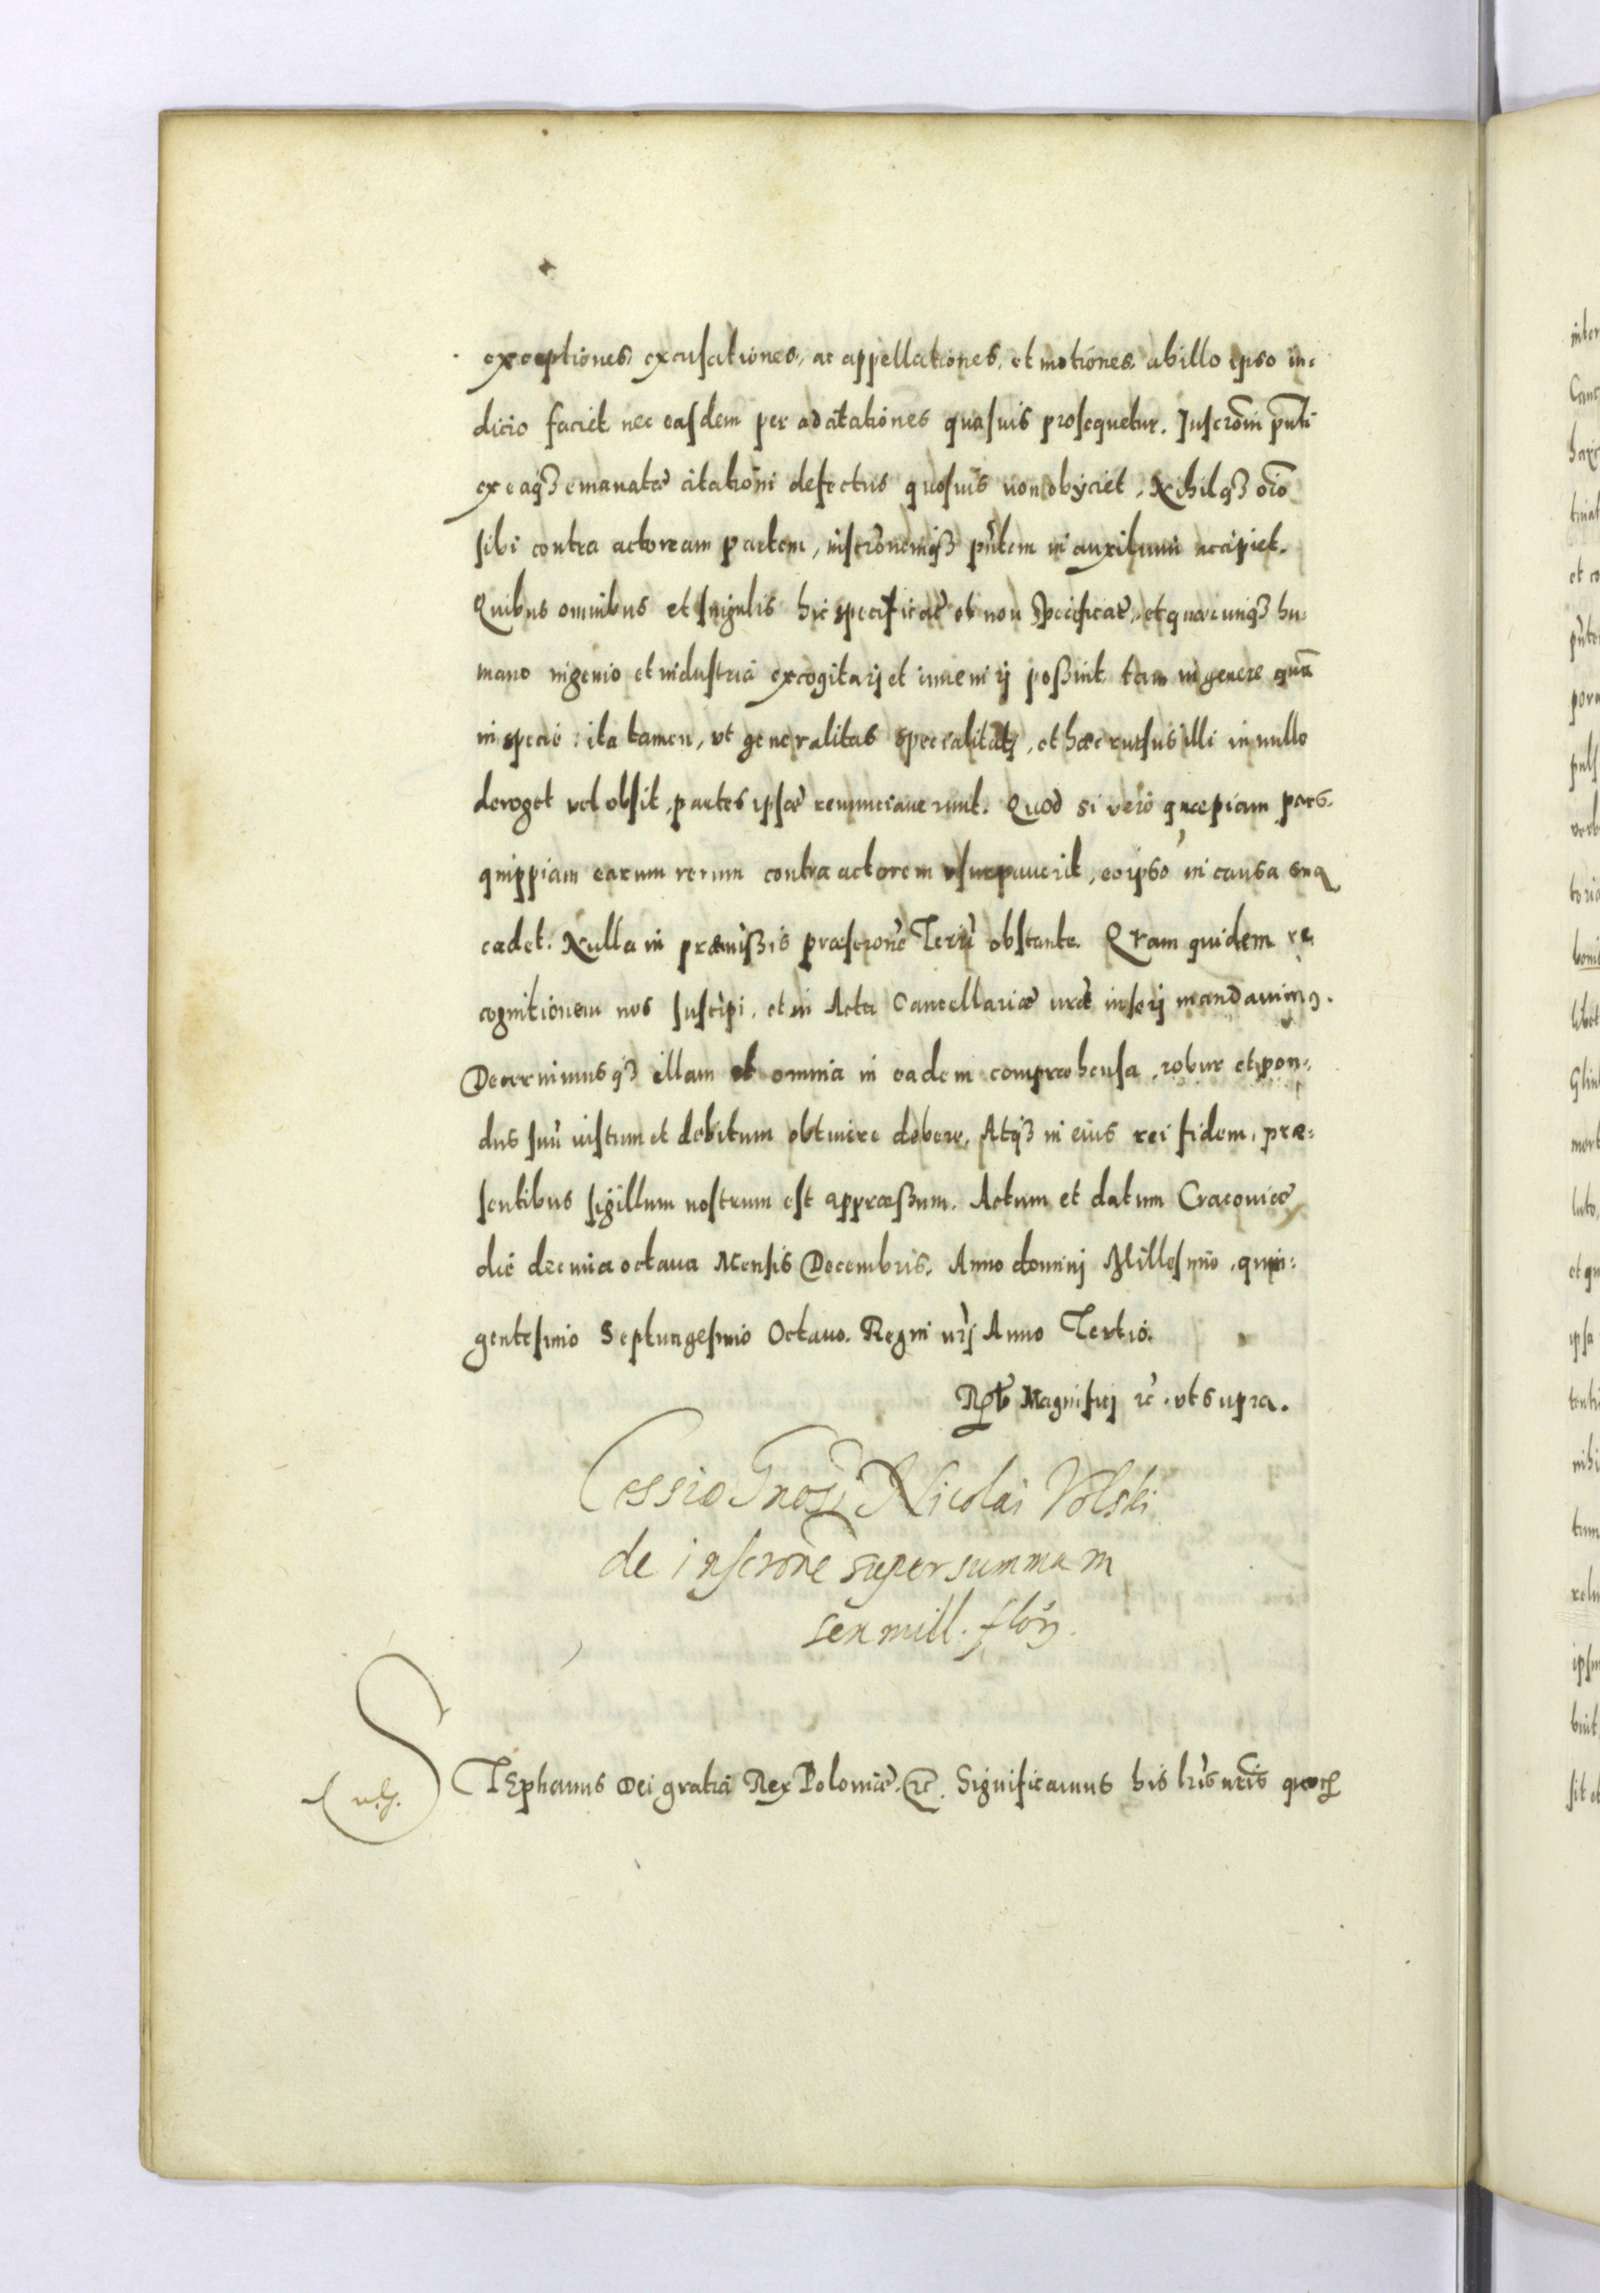 exceptiones, excusationes, ac appellationes, et motiones, ab illo ipso iu:
dicio faciet nec easdem per adcitationes quasuis prosequetur. Inscrõni pñti
ex eaqȝ emanatæ citationi defectus quosuis non obijciet, Nihilqȝ oĩo
sibi contra actoream partem, inscrõnemqȝ pñtem in auxilium accipiet.
Quibus omnibus et singulis hic specificat̃ et non specificat̃, et quæcunqȝ hu:
mano ingenio et industria excogitarj et inuenirj possint tam in genere quã
in specie: ita tamen, vt generalitas specialitatj, et hæc rursus illi in nullo
deroget vel obsit, partes ipsæ renunciauerunt. Quod si vero quæpiam pars
quippiam earum rerum contra actorem vsurpauerit, eo ipso in causa sua
cadet. Nulla in præmissis præscrõne Terr̃i obstante. Quam quidem re
cognitionem nos suscipi, et in Acta Cancellariæ nr̃æ inserj mandauimꝯ.
Decernimusqȝ illam et omnia in eadem compræhensa, robur et pon:
dus suũ iustum et debitum obtinere debere, Atqȝ in eius rei fidem, præ:
sentibus sigillum nostrum est appræssum. Actum et datum Cracouiæ
die decima octaua Mensis Decembris. Anno dominj Millesimo, quin:
gentesimo Septuagesimo Octauo. Regni nr̃j Anno Tertio.
Magnificj ꝛc̃. vt supra.
Cessio Gnosi Nicolai Volski
de inscrõne super summam
sex mill. flor.
STEphanus Dei gratia Rex Poloniæ. ꝛc̃. Significamus his lr̃is nr̃is quorꝫ